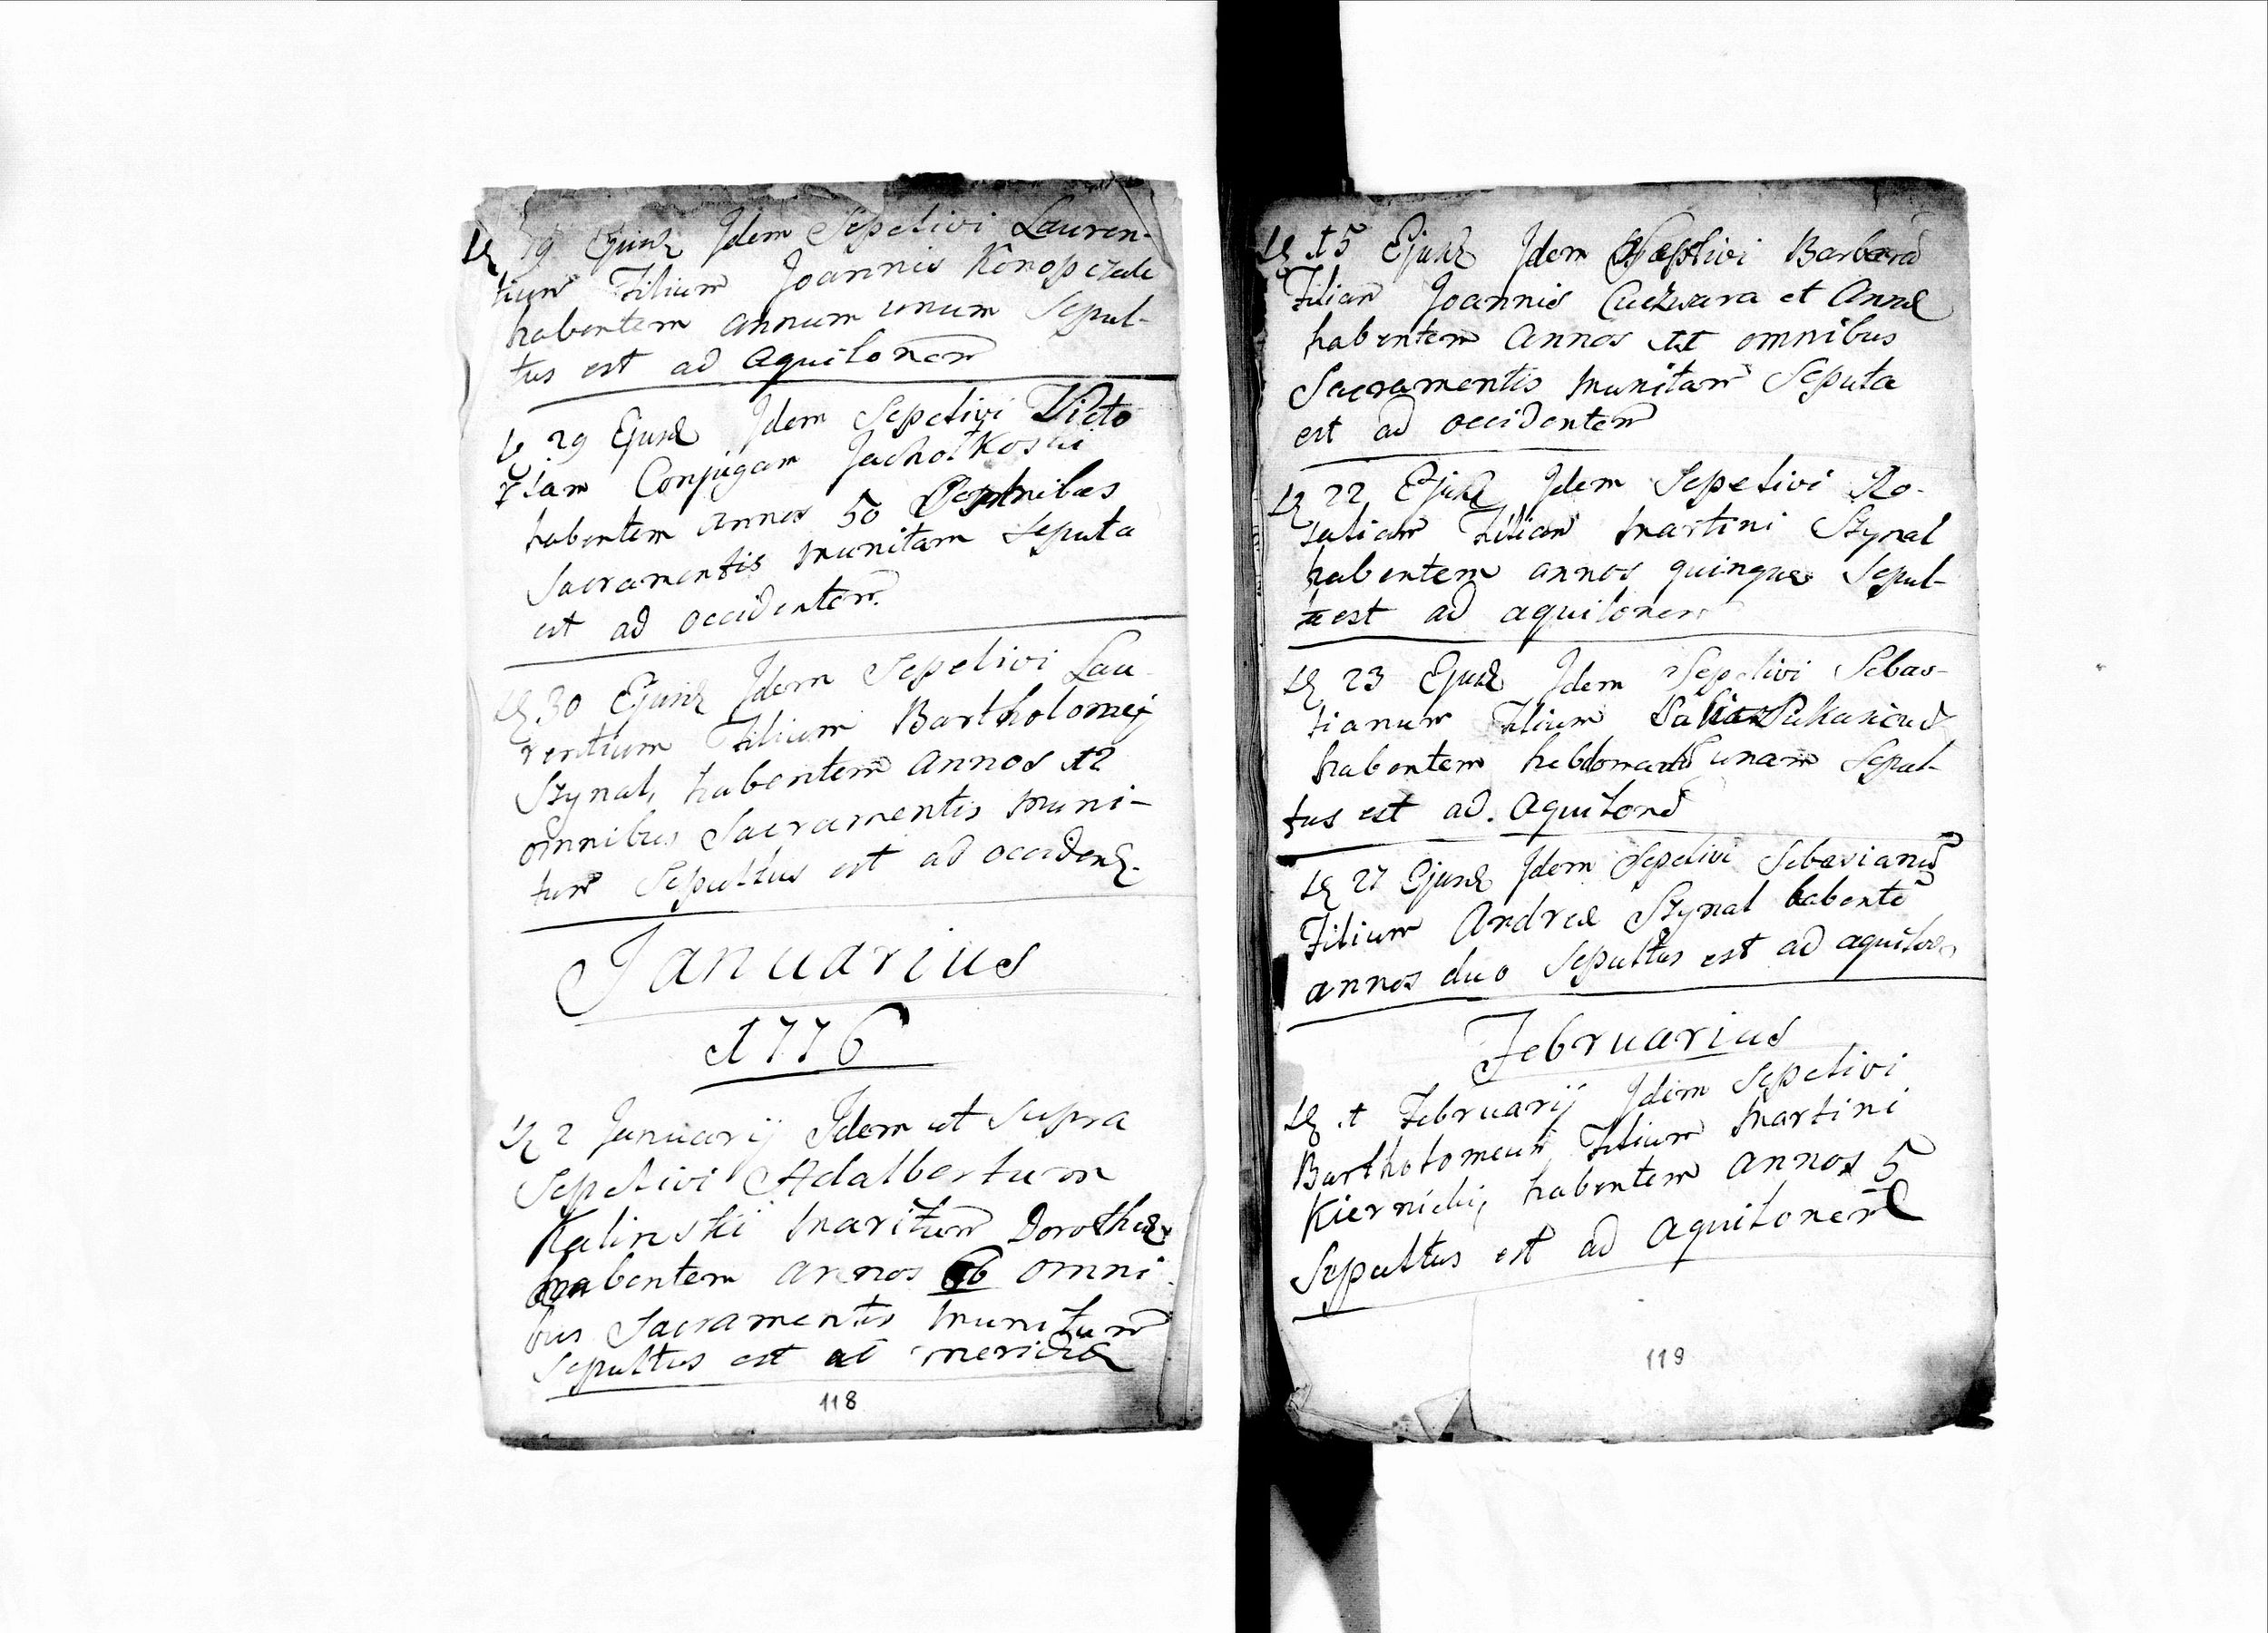 19 Ejusd Idem Sepelivi Lauren-
tium Filium Joannis Konopczak
habentem annum unum Sepul-
tus est ad aquilonem
29 Ejusd Idem Sepelivi Victo
riam Conjugem
habentem annos 50 omnibus
Sacramentis munitam Seputa
est ad occidentem
30 Ejusd Idem Sepelivi Lau
rentium Filium Bartholomej
Szynal, habentem annos 12
omnibus Sacramentis muni-
tum Sepultus est ad occident
Januarius
1776
2 Januarij Idem ut supra
Sepelivi Adalbertum
Kalinskii maritum Dorothea
habentem annos omni
bus Sacramentis munitum
Sepultus est ad meridie
118
15 Ejusd Idem Sepelivi Barbarā
Filiam Joannis et Annæ
habentem annos 11 omnibus
Sacramentis munitam Seputa
est ad occidentem
22 Ejusd Idem Sepelivi Ro-
saliam Filiam Martini Szynal
habentem annos quinque Sepul-
ta est ad aquilonem
23 Ejusd Idem Sepelivi Sebas-
tianum Filium
habentem hebdomadā unam Sepul-
tus est ad. aquilonē
27 Ejusd Idem Sepelivi Sebasianū
Filium Andreæ Szynal habentē
annos duo Sepultus est ad aquilon
Februarius
1 Februarij Idem Sepelivi
Bartholomeum Filium Martini
Kiernicki, habentem annos 5
Sepultus est ad aquilonem
119